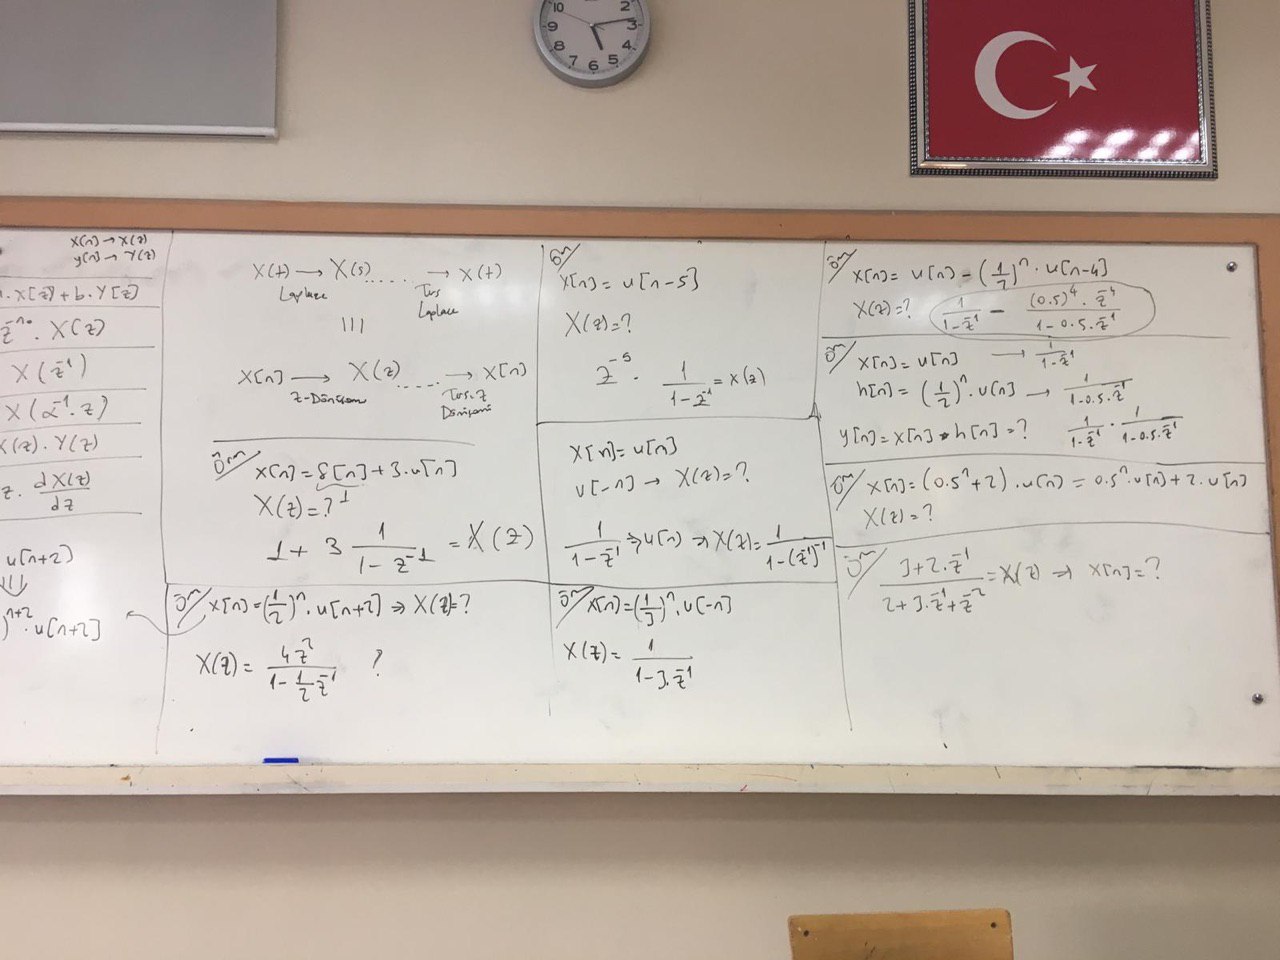 10
2
9
3
8
4
7
6
5
x[n] → X(z)
y[n] → Y(z)
. X[z] + b.Y[z]
. X(z)
X(z⁻¹)
X(α⁻¹.z)
X(z).Y(z)
z. dX(z)/dz
u[n+2]
n+2 . u[n+2]
X(t) → X(s) ..... → X(t)
Laplace Ters Laplace
X[n] → X(z) ..... → X[n]
z-Dönüşüm Ters.z Dönüşümü
Ön/
X[n] = δ[n] + 3.u[n]
X(z) = ? 1
1 + 3 1/(1 - z⁻¹) = X(z)
Ön/ X[n] = (1/2)ⁿ . u[n+2] ⇒ X(z) = ?
X(z) = 4z²/(1 - 1/2 z⁻¹) ?
Ön/
X[n] = u[n-5]
X(z) = ?
z⁻⁵ . 1/(1 - z⁻¹) = X(z)
X[n] = u[n]
u[-n] → X(z) = ?
1/(1 - z⁻¹) ⇒ u[n] ⇒ X(z) = 1/(1 - (z⁻¹)⁻¹)
Ön/ X[n] = (1/3)ⁿ . u[-n]
X(z) = 1/(1 - 3.z⁻¹)
Ön/ X[n] = u[n] - (1/2)ⁿ . u[n-4]
X(z) = ? 1/(1 - z⁻¹) - (0.5)⁴ . z⁻⁴/(1 - 0.5.z⁻¹)
Ön/ X[n] = u[n] → 1/(1 - z⁻¹)
h[n] = (1/2)ⁿ . u[n] → 1/(1 - 0.5.z⁻¹)
y[n] = x[n] * h[n] = ? 1/(1 - z⁻¹) . 1/(1 - 0.5.z⁻¹)
Ön/ X[n] = (0.5ⁿ + 2) . u[n] = 0.5ⁿ.u[n] + 2.u[n]
X(z) = ?
Ön/ (3 + 2.z⁻¹)/(2 + 3.z⁻¹ + z⁻²) = X(z) ⇒ X[n] = ?